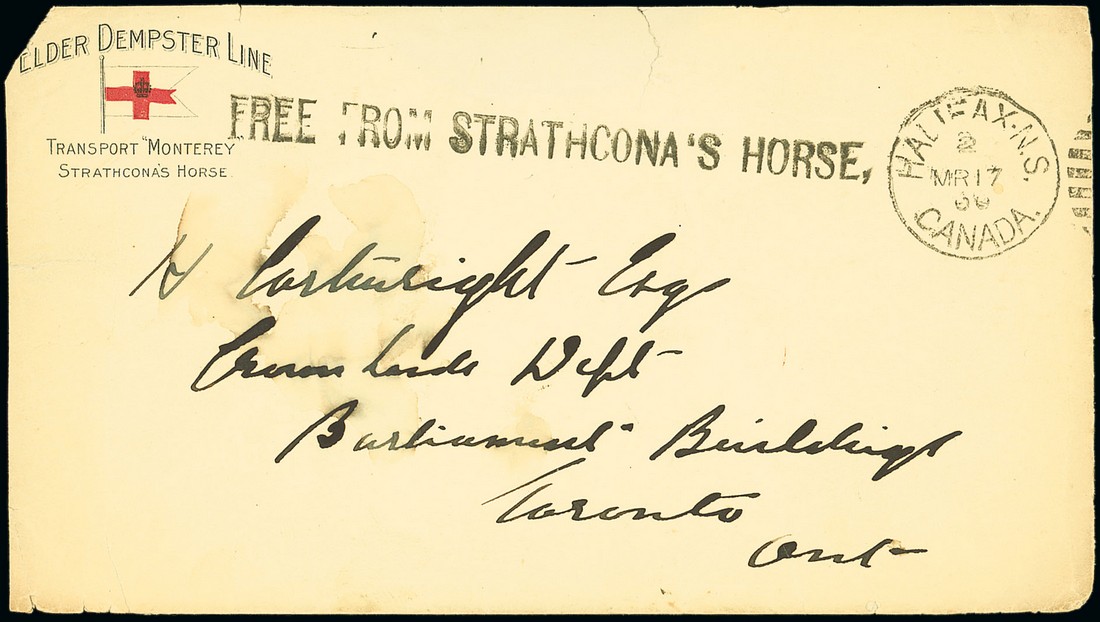 ELDER DEMPSTER LINE
TRANSPORT "MONTEREY"
STRATHCONA'S HORSE.
FREE FROM STRATHCONA'S HORSE,
HALIFAX·N.S.
2
MR 17
00
CANADA.
H Cartwright Esq
Crown Lands Dept
Parliament Buildings
Toronto
Ont